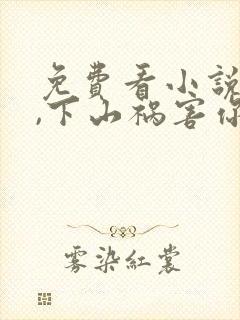 免費看小說
,下山禍害你
雾染紅裳